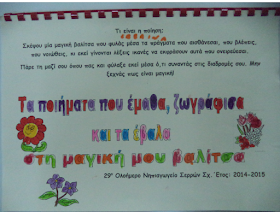 Τι είναι η ποίηση;
Σκέψου μία μαγική βαλίτσα που φυλάς μέσα τα πράγματα που αισθάνεσαι, που βλέπεις,
που νοιώθεις, κι εκεί γίνονται λέξεις ικανές να εκφράσουν αυτό που ονειρεύεσαι.
Πάρε τη μαζί σου όπου πας και φύλαξε εκεί μέσα ό,τι συναντάς στις διαδρομές σου. Μην
ξεχνάς πως είναι μαγική!
Τα ποιήματα που έμαθα, ζωγράφισα
και τα έβαλα
στη μαγική μου βαλίτσα
29° Ολοήμερο Νηπιαγωγείο Σερρών Σχ. Έτος: 2014-2015